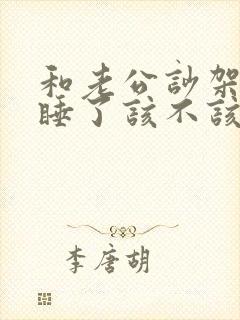 和老公訬架
睡了该不该
李唐胡